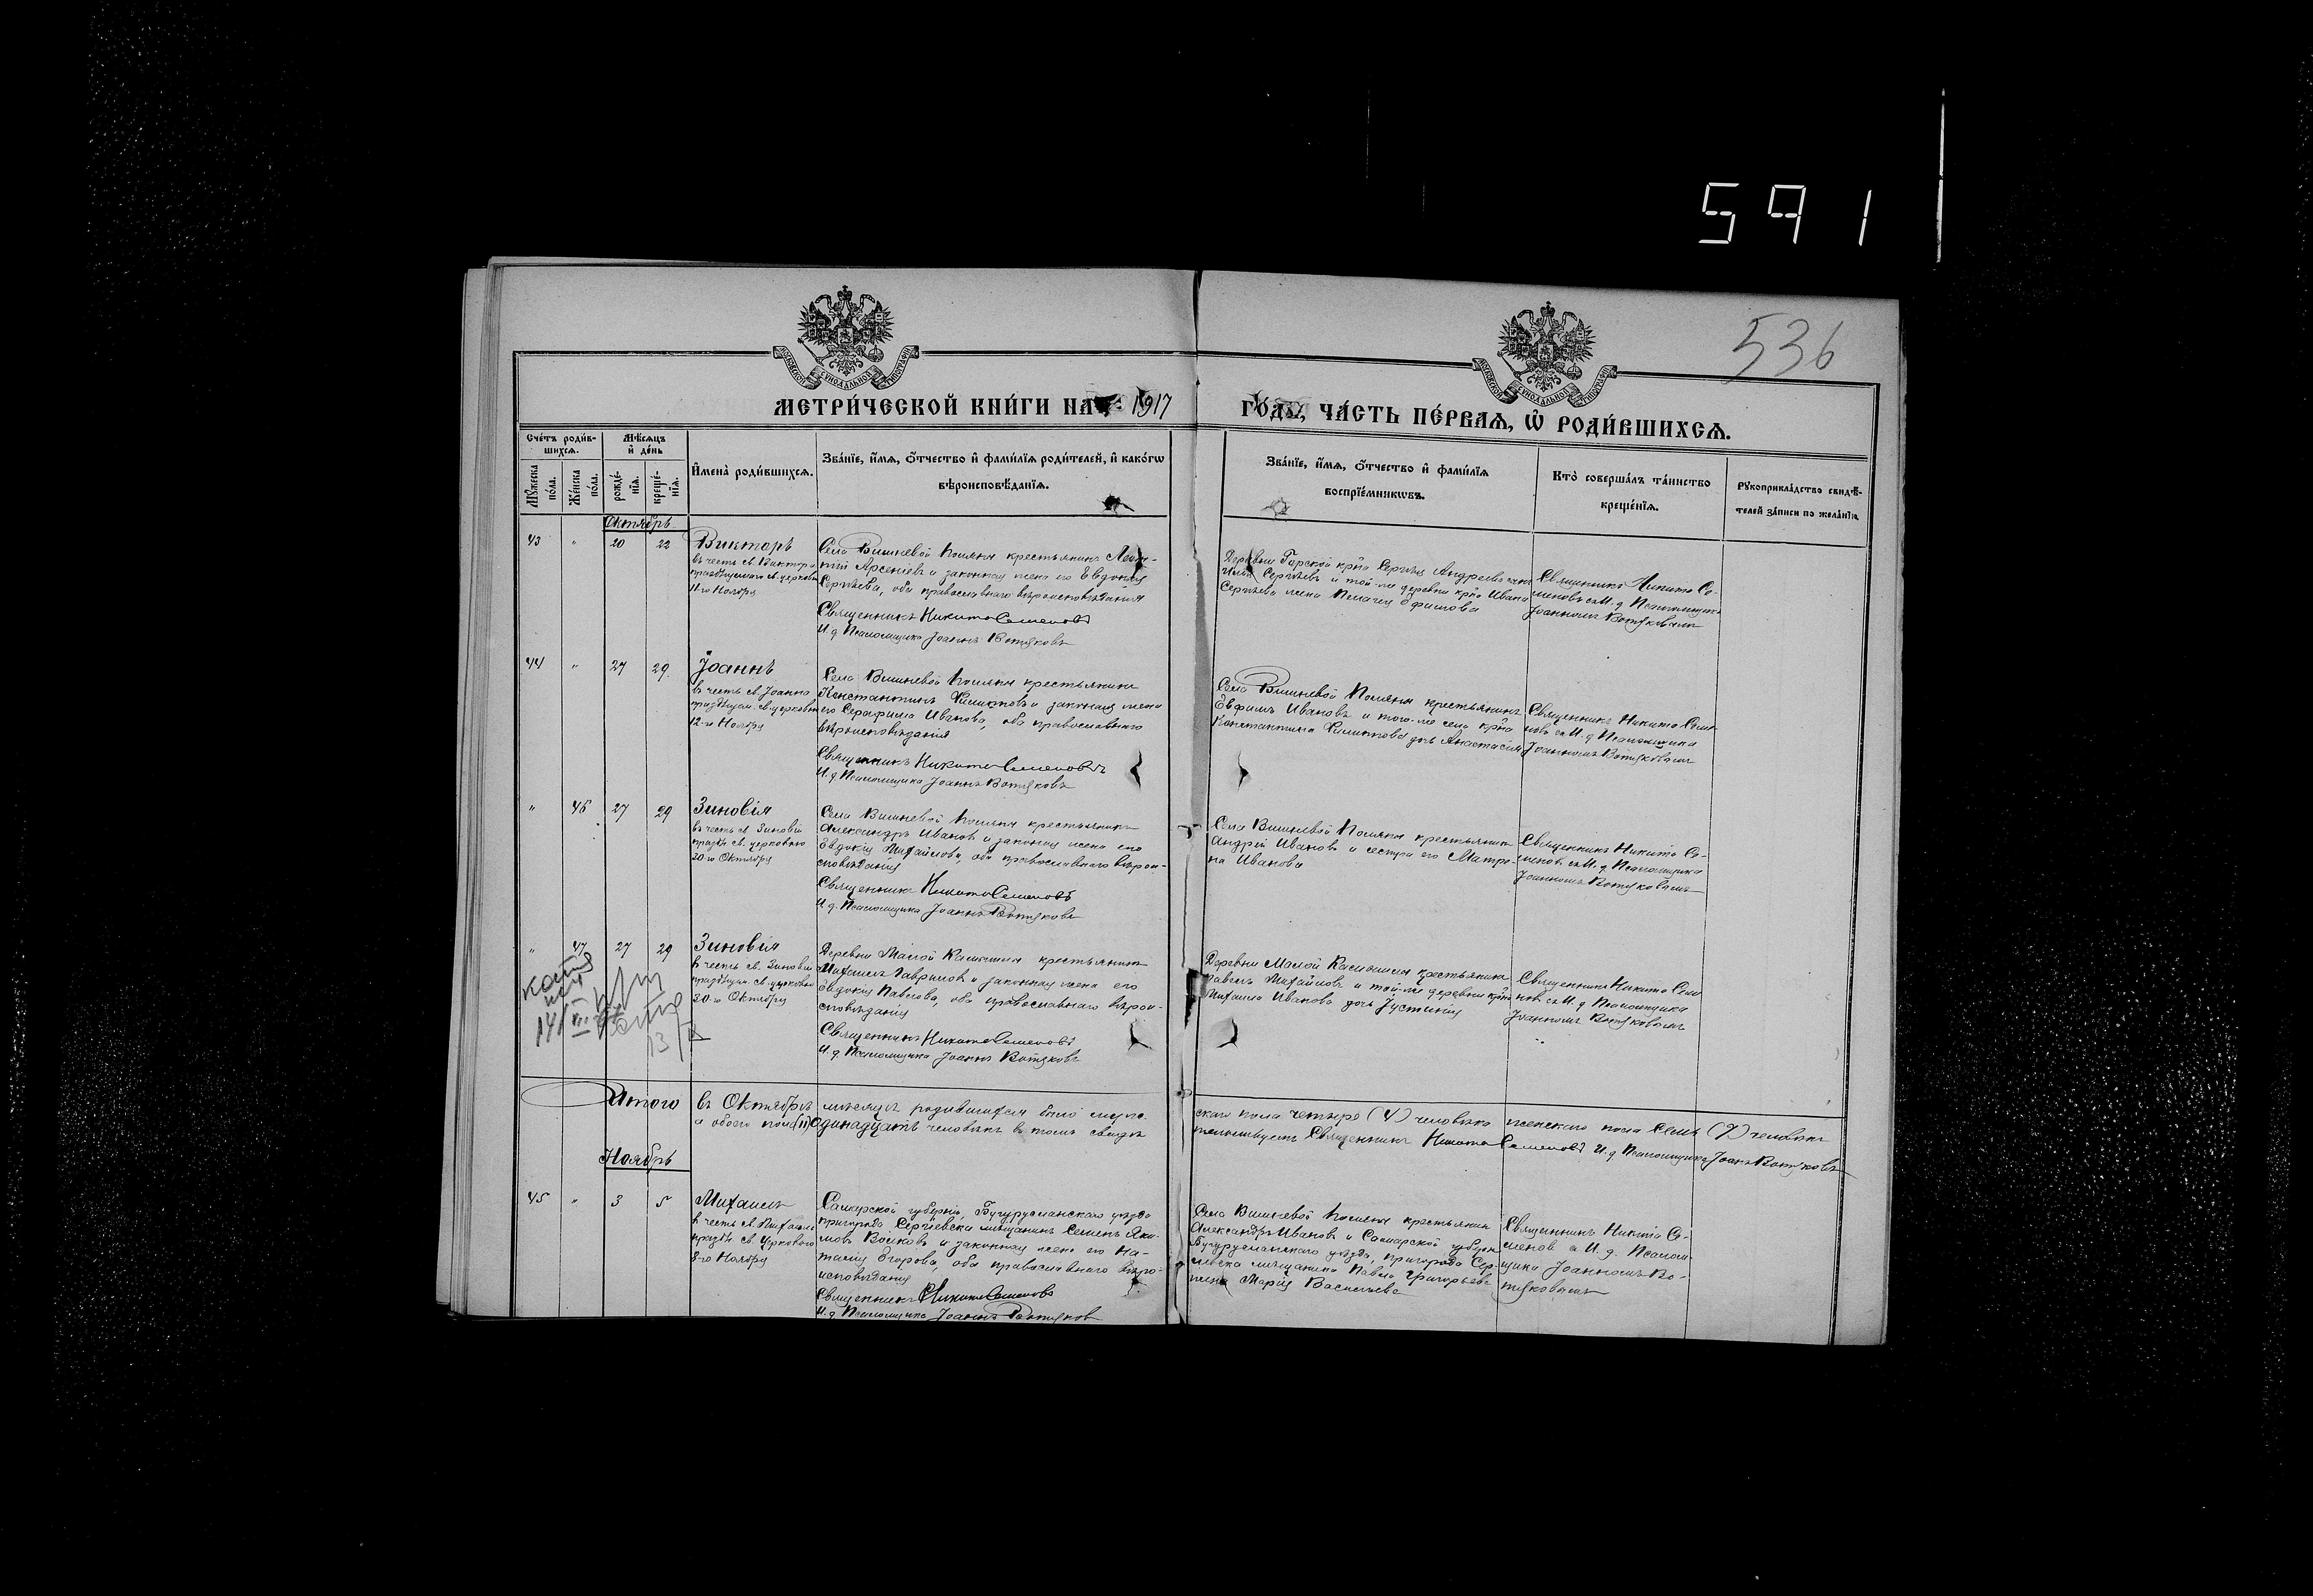 591
536
МОСКОВСКОЙ СѴНОДАЛЬНОЙ ТИПОГРАФІИ
МОСКОВСКОЙ СѴНОДАЛЬНОЙ ТИПОГРАФІИ
МЕТРИ́ЧЕСКОЙ КНИ́ГИ НА 1917 ГОДЪ, ЧА́СТЬ ПЕ́РВАЯ, Ѡ РОДИ́ВШИХСЯ.
Сче́тъ роди́в-
шихся.
Мѣ́сяцъ
и де́нь
Мꙋ́жеска по́ла.
Же́нска по́ла.
рожде́-
нїя.
креще́-
нїя.
И҆мена̀ роди́вшихся.
Зва́нїе, и҆́мя, ѻ҆́тчество и҆ фами́лїя роди́телей, и҆ како́гѡ
вѣроисповѣ́данїя.
Зва́нїе, и҆́мя, ѻ҆́тчество и҆ фами́лїя
воспрїе́мникѡвъ.
Кто̀ соверша́лъ та́инство
креще́нїя.
Рꙋкоприкла́дство свидѣ́-
телей за́писи по жела́нїю.
Октябрь
43 " 20 22
Викторъ
въ честь св. Виктора
празднуемаго св. церковью
11-го Ноября
Села Вишневой Поляны крестьянинъ Леон-
тій Арсеніевъ и законная жена его Евдокія
Сергѣева, оба православнаго вѣроисповѣданія
Священникъ Никита Семеновъ
И. д. Псаломщика Іоаннъ Вотяковъ
Деревни крⁿа Сергѣя Андреева сынъ
Илья Сергѣевъ и той-же деревни крⁿа Ивана
Сергѣева жена Пелагея Ефимова
Священникъ Никита Се-
меновъ съ И. д. Псаломщика
Іоанномъ Вотяковымъ
44 " 27 29.
Іоаннъ
въ честь св. Іоанна
праздуем. св. церковью
12-го Ноября
Села Вишневой Поляны крестьянинъ
Константинъ Филипповъ и законная жена
его Серафима Иванова, оба православнаго
вѣроисповѣданія
Священникъ Никита Семеновъ
И. д. Псаломщика Іоаннъ Вотяковъ
Села Вишневой Поляны крестьянинъ
Евфимъ Ивановъ и того-же села крⁿа
Константина Филиппова дочь Анастасія
Священникъ Никита Семе-
новъ съ И. д. Псаломщика
Іоанномъ Вотяковымъ
" 46 27 29
Зиновія
въ честь св. Зиновіи
праздн. св. церковью
30-го Октября
Села Вишневой Поляны крестьянинъ
Александръ Ивановъ и законная жена его
Евдокія Михайлова, оба православнаго вѣрои-
сповѣданія
Священникъ Никита Семеновъ
И. д. Псаломщика Іоаннъ Вотяковъ
Села Вишневой Поляны крестьянинъ
Андрей Ивановъ и сестра его Матро-
на Иванова
Священникъ Никита Се-
меновъ съ И. д. Псаломщика
Іоанномъ Вотяковымъ
" 47 27 29
Зиновія
въ честь св. Зиновіи
празднуем. св. церковью
30-го Октября
Деревни Малой Камышлы крестьянинъ
Михаилъ Гавриловъ и законная жена его
Евдокія Павлова, оба православнаго вѣрои-
сповѣданія
Священникъ Никита Семеновъ
И. д. Псаломщика Іоаннъ Вотяковъ
Деревни Малой крестьянинъ
Павелъ Михайловъ и той-же деревни крⁿа
Михаила Иванова дочь Іустинія
Священникъ Никита Семе-
новъ съ И. д. Псаломщика
Іоанномъ Вотяковымъ
14/III
13/
Итого въ Октябрѣ мѣсяцѣ родившихся было муже-
скаго пола четыре (4) человѣка женскаго пола семь (7) человѣкъ
а обоего пола (11) одинадцать человѣкъ въ томъ свидѣ-
тельствуетъ Священникъ Никита Семеновъ И. д. Псаломщика Іоаннъ Вотяковъ
Ноябрь
45 " 3 5
Михаилъ
въ честь св. Михаила
праздн. св. церковью
8-го Ноября
Самарской губерніи, Бугурусланскаго уѣзда
пригорода Сергіевска мѣщанинъ Семенъ Яко-
влевъ Волковъ и законная жена его На-
талія Егорова, оба православнаго вѣро-
исповѣданія
Священникъ Никита Семеновъ
И. д. Псаломщика Іоаннъ Вотяковъ
Села Вишневой Поляны крестьянинъ
Александръ Ивановъ и Самарской губерн.
Бугурусланскаго уѣзда, пригорода Сер-
гіевска мѣщанина Павла Григорьева
жена Марія Васильева
Священникъ Никита Се-
меновъ съ И. д. Псалом-
щика Іоанномъ Во-
тяковымъ